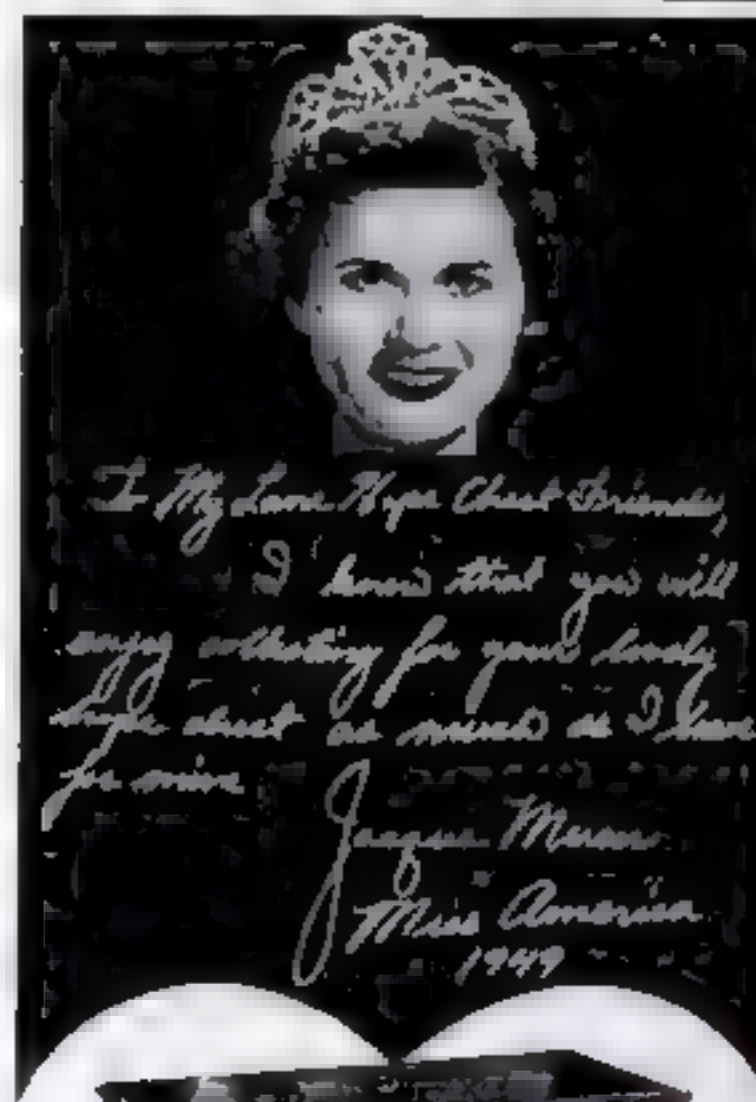 To My Lane Hope Chest Friends,
I know that you will
enjoy collecting for your lovely
hope chest as much as I have
for mine
Jacque Mercer
Miss America
1949